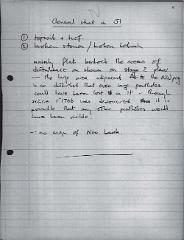 General chat & J1
① topsoil & turf
② broken stones / broken
mainly flat bedrock the areas of
disturbance as shown on Stage 2 plan
- the large area adjacent to the
is so disturbed that even large postholes
could have been lost in it - though
since F1766 was discovered it is
possible that any other postholes would
have been visible!
- no sign of New